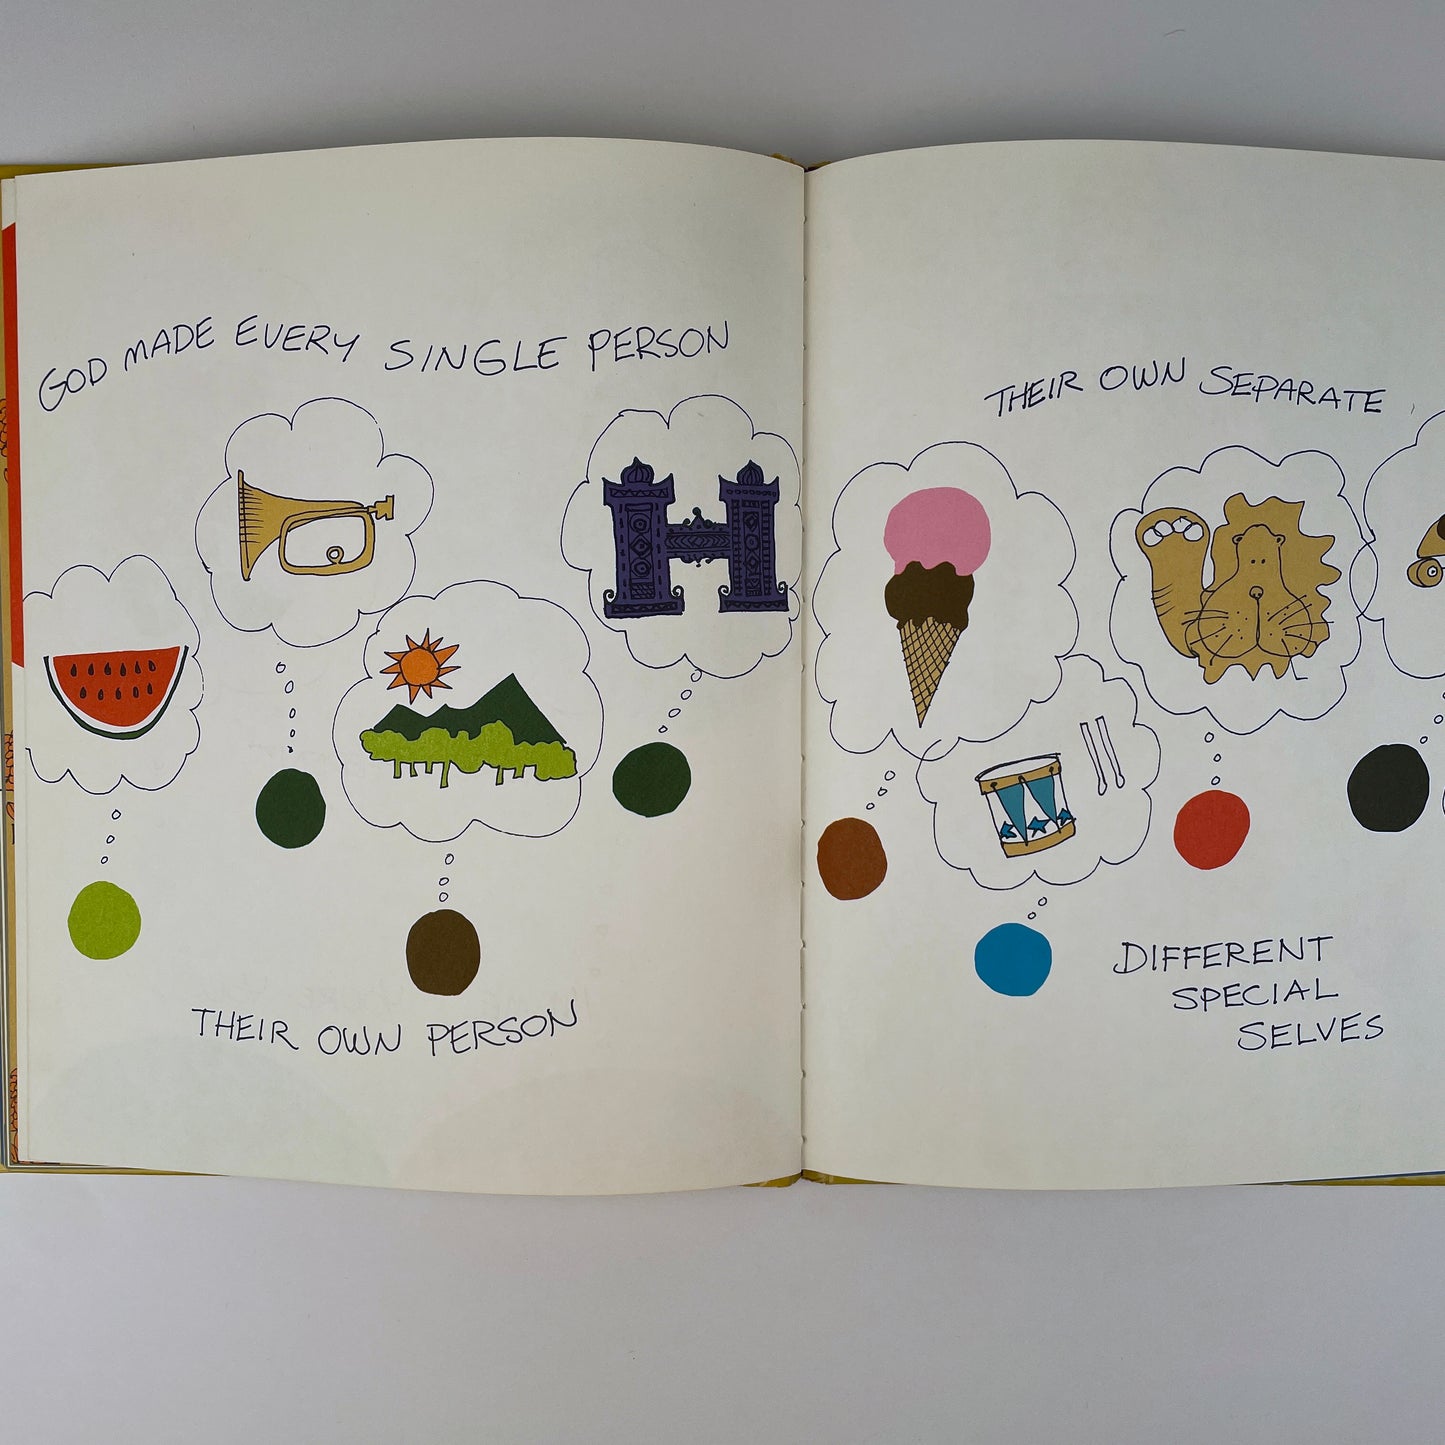 GOD MADE EVERY SINGLE PERSON
THEIR OWN PERSON
THEIR OWN SEPARATE
DIFFERENT
SPECIAL
SELVES